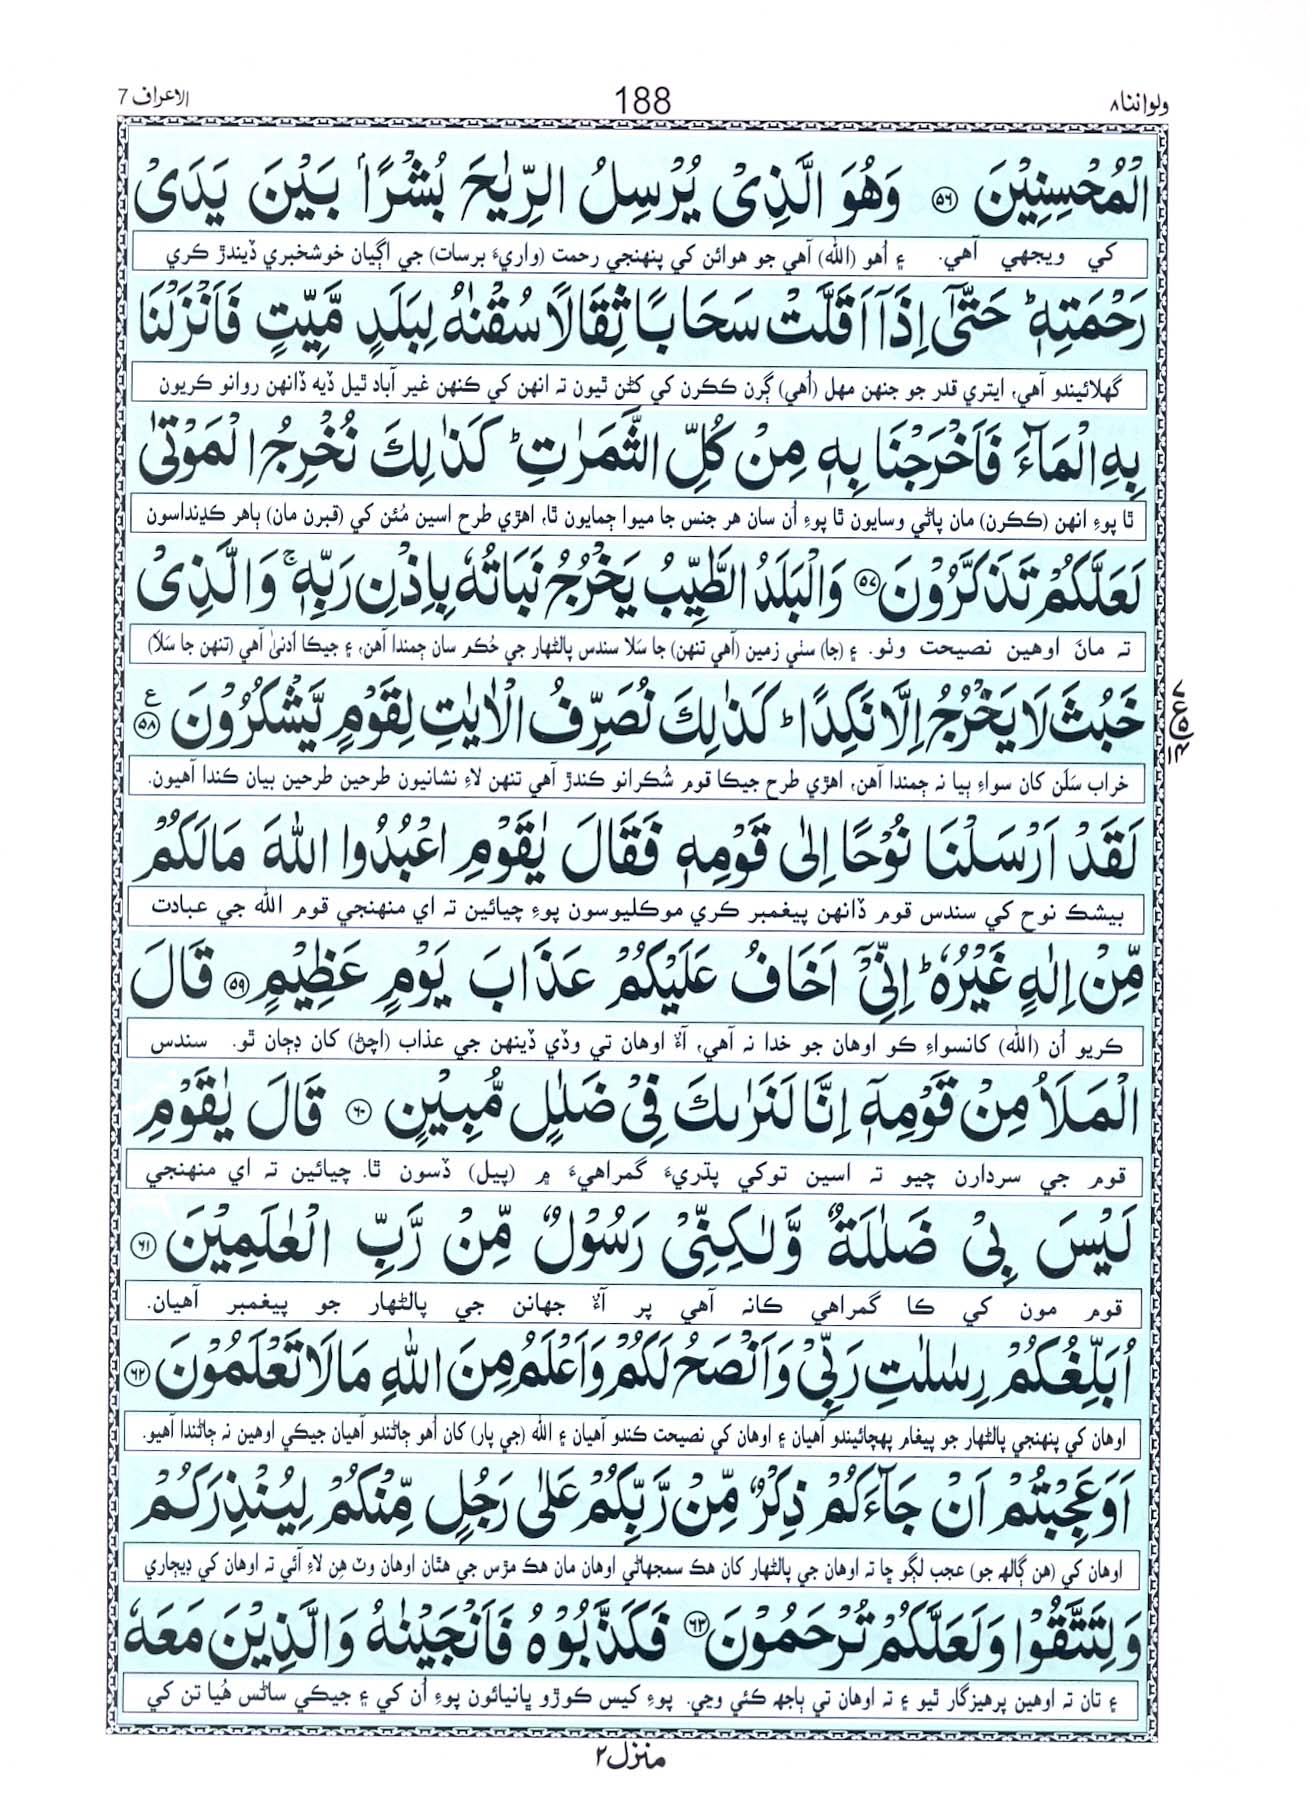 ولواننا ٨
188
الاعراف 7
الْمُحْسِنِيْنَ ﴿٥٦﴾ وَهُوَ الَّذِىْ يُرْسِلُ الرِّيٰحَ بُشْرًاۢ بَيْنَ يَدَىْ
کي ويجهي آهي. ۽ اُهو (الله) آهي جو هوائن کي پنهنجي رحمت (واريءَ برسات) جي اڳيان خوشخبري ڏيندڙ ڪري
رَحْمَتِهٖ ؕ حَتّٰٓى اِذَآ اَقَلَّتْ سَحَابًا ثِقَالًا سُقْنٰهُ لِبَلَدٍ مَّيِّتٍ فَاَنْزَلْنَا
گهلائيندو آهي، ايتري قدر جو جنهن مهل (اُهي) ڳرن ڪڪرن کي کڻن ٿيون تہ انهن کي ڪنهن غير آباد ٿيل ڏيہ ڏانهن روانو ڪريون
بِهِ الْمَآءَ فَاَخْرَجْنَا بِهٖ مِنْ كُلِّ الثَّمَرٰتِ ؕ كَذٰلِكَ نُخْرِجُ الْمَوْتٰى
ٿا پوءِ انهن (ڪڪرن) مان پاڻي وسايون ٿا پوءِ اُن سان هر جنس جا ميوا ڄمايون ٿا، اهڙي طرح اسين مُئن کي (قبرن مان) ٻاهر ڪڍنداسون
لَعَلَّكُمْ تَذَكَّرُوْنَ ﴿٥٧﴾ وَالْبَلَدُ الطَّيِّبُ يَخْرُجُ نَبَاتُهٗ بِاِذْنِ رَبِّهٖ ۚ وَالَّذِىْ
تہ مان اوهين نصيحت وٺو. ۽ (جا) سٺي زمين (آهي تنهن) جا سَلا سندس پالڻهار جي حُڪم سان ڄمندا آهن، ۽ جيڪا اَدنىٰ آهي (تنهن جا سَلا)
خَبُثَ لَا يَخْرُجُ اِلَّا نَكِدًا ؕ كَذٰلِكَ نُصَرِّفُ الْاٰيٰتِ لِقَوْمٍ يَّشْكُرُوْنَ ﴿٥٨﴾ ع
خراب سَلَن کان سواءِ ٻيا نہ ڄمندا آهن، اهڙي طرح جيڪا قوم شُڪرانو ڪندڙ آهي تنهن لاءِ نشانيون طرحين طرحين بيان ڪندا آهيون.
لَقَدْ اَرْسَلْنَا نُوْحًا اِلٰى قَوْمِهٖ فَقَالَ يٰقَوْمِ اعْبُدُوا اللّٰهَ مَا لَكُمْ
بيشڪ نوح کي سندس قوم ڏانهن پيغمبر ڪري موڪليوسون پوءِ چيائين تہ اي منهنجي قوم الله جي عبادت
مِّنْ اِلٰهٍ غَيْرُهٗ ؕ اِنِّىْۤ اَخَافُ عَلَيْكُمْ عَذَابَ يَوْمٍ عَظِيْمٍ ﴿٥٩﴾ قَالَ
ڪريو اُن (الله) کانسواءِ ڪو اوهان جو خدا نہ آهي، آءٌ اوهان تي وڏي ڏينهن جي عذاب (اچڻ) کان ڊڄان ٿو. سندس
الْمَلَاُ مِنْ قَوْمِهٖۤ اِنَّا لَنَرٰىكَ فِىْ ضَلٰلٍ مُّبِيْنٍ ﴿٦٠﴾ قَالَ يٰقَوْمِ
قوم جي سردارن چيو تہ اسين توکي پڌريءَ گمراهيءَ ۾ (پيل) ڏسون ٿا. چيائين تہ اي منهنجي
لَيْسَ بِىْ ضَلٰلَةٌ وَّلٰكِنِّىْ رَسُوْلٌ مِّنْ رَّبِّ الْعٰلَمِيْنَ ﴿٦١﴾
قوم مون کي ڪا گمراهي ڪانہ آهي پر آءٌ جهانن جي پالڻهار جو پيغمبر آهيان.
اُبَلِّغُكُمْ رِسٰلٰتِ رَبِّىْ وَاَنْصَحُ لَكُمْ وَاَعْلَمُ مِنَ اللّٰهِ مَا لَا تَعْلَمُوْنَ ﴿٦٢﴾
اوهان کي پنهنجي پالڻهار جو پيغام پهچائيندو آهيان ۽ اوهان کي نصيحت ڪندو آهيان ۽ الله (جي پار) کان اُهو ڄاڻندو آهيان جيڪي اوهين نہ ڄاڻندا آهيو.
اَوَعَجِبْتُمْ اَنْ جَآءَكُمْ ذِكْرٌ مِّنْ رَّبِّكُمْ عَلٰى رَجُلٍ مِّنْكُمْ لِيُنْذِرَكُمْ
اوهان کي (هن ڳالهہ جو) عجب لڳو ڇا تہ اوهان جي پالڻهار کان هڪ سمجهاڻي اوهان مان هڪ مڙس جي هٿان اوهان وٽ هِن لاءِ آئي تہ اوهان کي ڊيڄاري
وَلِتَتَّقُوْا وَلَعَلَّكُمْ تُرْحَمُوْنَ ﴿٦٣﴾ فَكَذَّبُوْهُ فَاَنْجَيْنٰهُ وَالَّذِيْنَ مَعَهٗ
۽ تان تہ اوهين پرهيزگار ٿيو ۽ تہ اوهان تي ٻاجهہ ڪئي وڃي. پوءِ کيس ڪوڙو ڀانيائون پوءِ اُن کي ۽ جيڪي ساڻس هُيا تن کي
منزل ٢